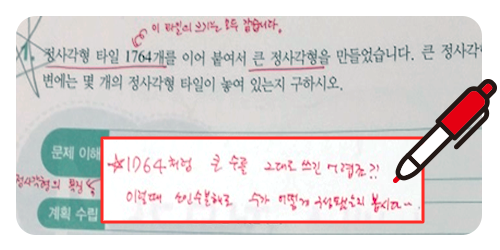 이 타일의 크기는 모두 같습니다.
1. 정사각형 타일 1764개를 이어 붙여서 큰 정사각형을 만들었습니다. 큰 정사각
변에는 몇 개의 정사각형 타일이 놓여 있는지 구하시오.
문제 이해
☆1764처럼 큰 수를 그대로 쓰긴 어렵죠?!
정사각형의
이럴때 소인수분해로 수가 어떻게 구성됐는지 봅시다~
계획 수립